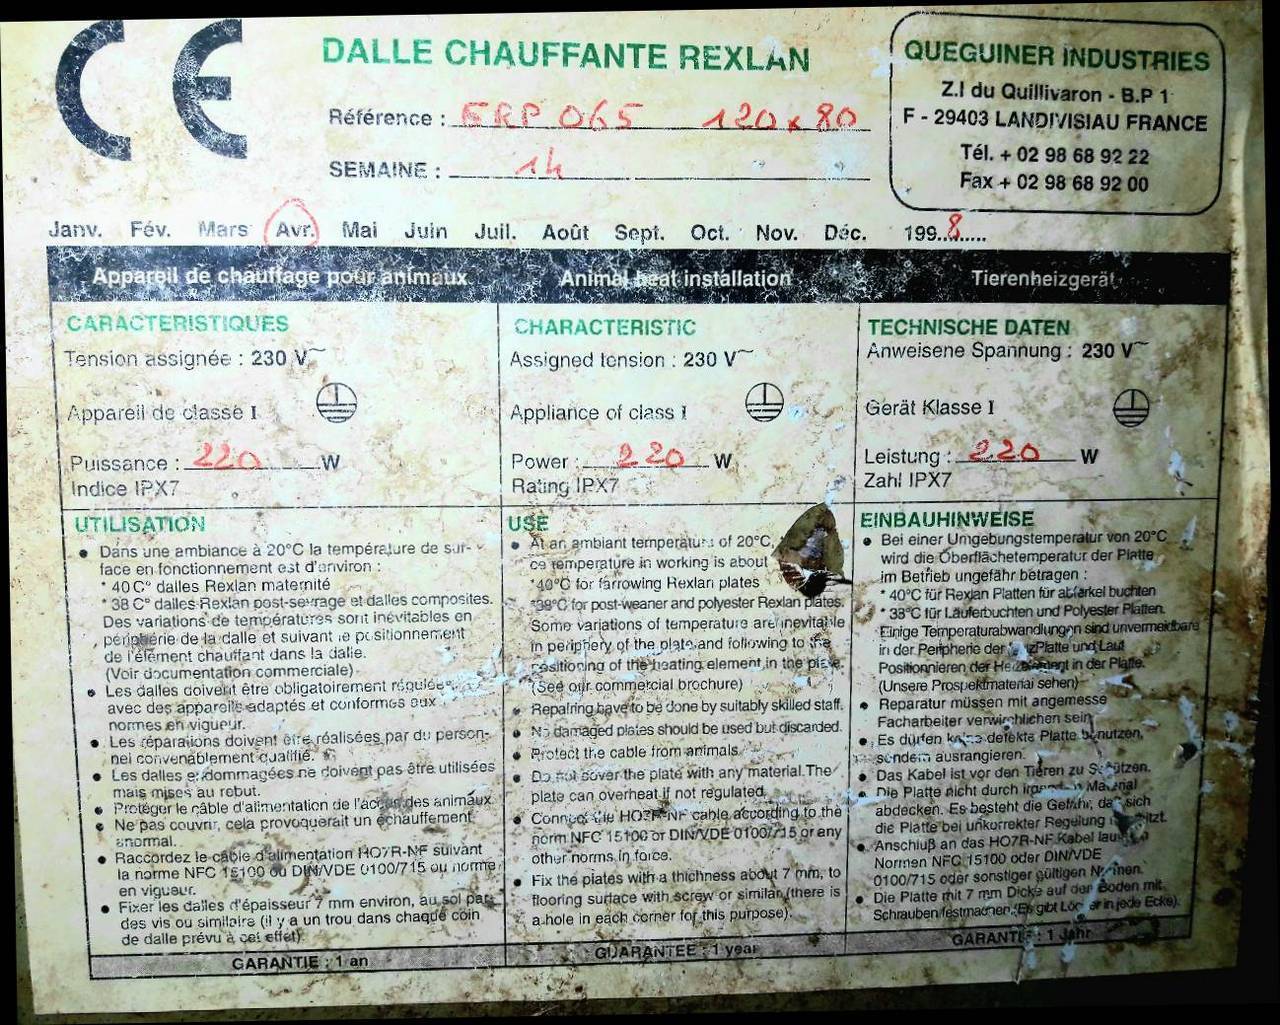 CE
DALLE CHAUFFANTE REXLAN
Référence : ERP 065 120 x 80
SEMAINE : 14
QUEGUINER INDUSTRIES
Z.I du Quillivaron - B.P 1
F - 29403 LANDIVISIAU FRANCE
Tél. + 02 98 68 92 22
Fax + 02 98 68 92 00
Janv. Fév. Mars Avr. Mai Juin Juil. Août Sept. Oct. Nov. Déc. 199..8......
Appareil de chauffage pour animaux
CARACTERISTIQUES
Tension assignée : 230 V~
Appareil de classe I
Puissance : 220 W
Indice IPX7
UTILISATION
• Dans une ambiance à 20°C la température de sur-
face en fonctionnement est d'environ :
* 40 C° dalles Rexlan maternité
* 38 C° dalles Rexlan post-sevrage et dalles composites.
Des variations de températures sont inévitables en
périphérie de la dalle et suivant le positionnement
de l'élément chauffant dans la dalle.
(Voir documentation commerciale)
• Les dalles doivent être obligatoirement régulées
avec des appareils adaptés et conformes aux
normes en vigueur.
• Les réparations doivent être réalisées par du person-
nel convenablement qualifié.
• Les dalles endommagées ne doivent pas être utilisées
mais mises au rebut.
• Protéger le câble d'alimentation de l'accès des animaux.
• Ne pas couvrir, cela provoquerait un échauffement
anormal.
• Raccordez le câble d'alimentation HO7R-NF suivant
la norme NFC 15100 ou DIN/VDE 0100/715 ou norme
en vigueur.
• Fixer les dalles d'épaisseur 7 mm environ, au sol par
des vis ou similaire (il y a un trou dans chaque coin
de dalle prévu à cet effet)
GARANTIE : 1 an
Animal heat installation
CHARACTERISTIC
Assigned tension : 230 V~
Appliance of class I
Power : 220 W
Rating IPX7
USE
• At an ambiant temperature of 20°C,
ce temperature in working is about
*40°C for farrowing Rexlan plates
*38°C for post-weaner and polyester Rexlan plates.
Some variations of temperature are inevitable
in periphery of the plate and following to the
positioning of the heating element in the plate.
(See our commercial brochure)
• Repairing have to be done by suitably skilled staff.
• No damaged plates should be used but discarded.
• Protect the cable from animals
• Do not cover the plate with any material. The
plate can overheat if not regulated
• Connect the HO7R-NF cable according to the
norm NFC 15100 or DIN/VDE 0100/715 or any
other norms in force.
• Fix the plates with a thichness about 7 mm, to
flooring surface with screw or similar (there is
a hole in each corner for this purpose).
GUARANTEE : 1 year
Tierenheizgerät
TECHNISCHE DATEN
Anweisene Spannung : 230 V~
Gerät Klasse I
Leistung : 220 W
Zahl IPX7
EINBAUHINWEISE
• Bei einer Umgebungstemperatur von 20°C
wird die Oberflächetemperatur der Platte
im Betrieb ungefähr betragen :
* 40°C für Rexlan Platten für abferkel buchten
* 38°C für Läuferbuchten und Polyester Platten.
Einige Temperaturabwandlungen sind unvermeidbare
in der Peripherie der Platte und Lauf
Positionnieren der in der Platte.
(Unsere Prospektmaterial sehen)
• Reparatur müssen mit angemesse
Facharbeiter verwirchlichen sein
• Es dürfen keine defekte Platte benutzen,
sondern ausrangieren.
• Das Kabel ist vor den Tieren zu Schützen.
• Die Platte nicht durch irgendein Material
abdecken. Es besteht die Gefahr, daß sich
die Platte bei unkorrekter Regelung
• Anschluß an das HO7R-NF Kabel laut
Normen NFC 15100 oder DIN/VDE
0100/715 oder sonstiger gültigen Normen.
• Die Platte mit 7 mm Dicke auf den Boden mit
Schrauben festmachen. (Es gibt Löcher in jede Ecke).
GARANTIE : 1 Jahr